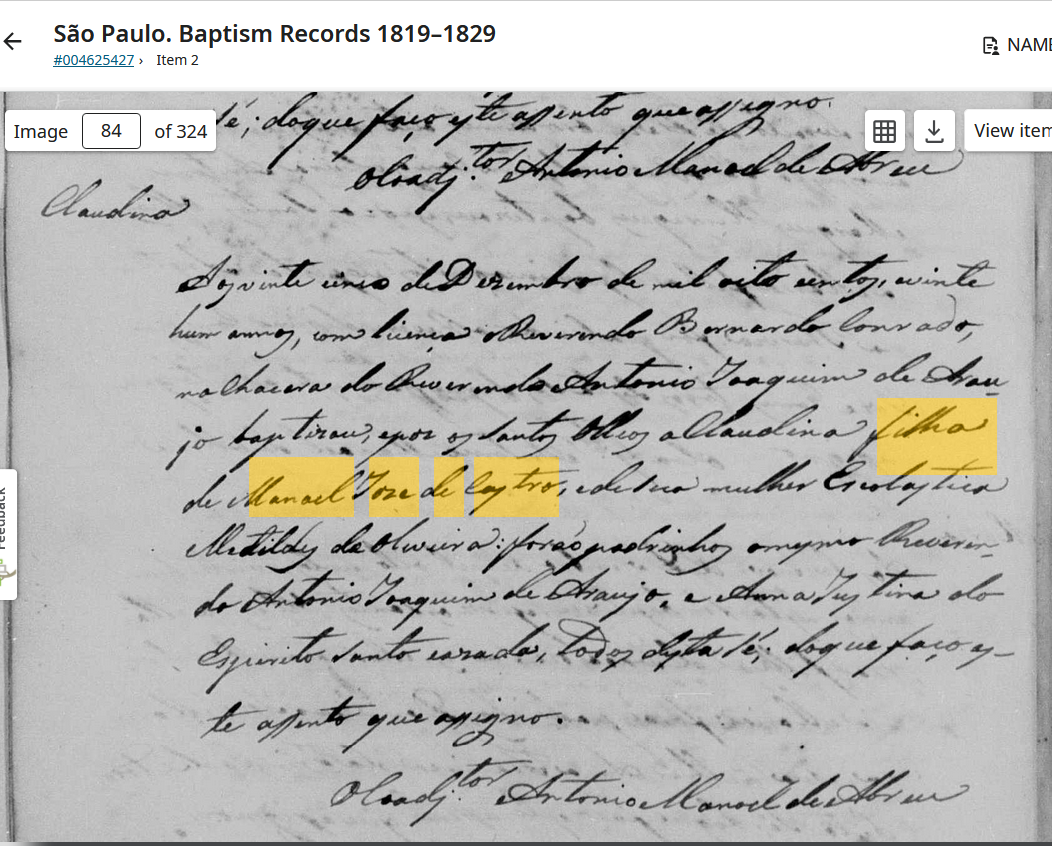 São Paulo. Baptism Records 1819–1829
#004625427 › Item 2
NAME
Image 84 of 324
View item
Sé; do que faço este assento que assigno.
O Coadj.tor Antonio Manoel de Abreu
Claudina
Aos vinte cinco de Dezembro de mil oito centos, e vinte
hum annos, com licença o Reverendo Bernardo Conrado,
na Chacera do Reverendo Antonio Joaquim de Arau
jo baptizou, e poz os santos Oleos a Claudina filha
de Manoel Joze de Castro, e de sua mulher Escolastica
Matildes de Oliveira: forão padrinhos o mesmo Reveren-
do Antonio Joaquim de Araujo, e Anna Justina do
Espirito Santo cazada, todos desta Sé; do que faço es-
te assento que assigno.
O Coadj.tor Antonio Manoel de Abreu
Feedback